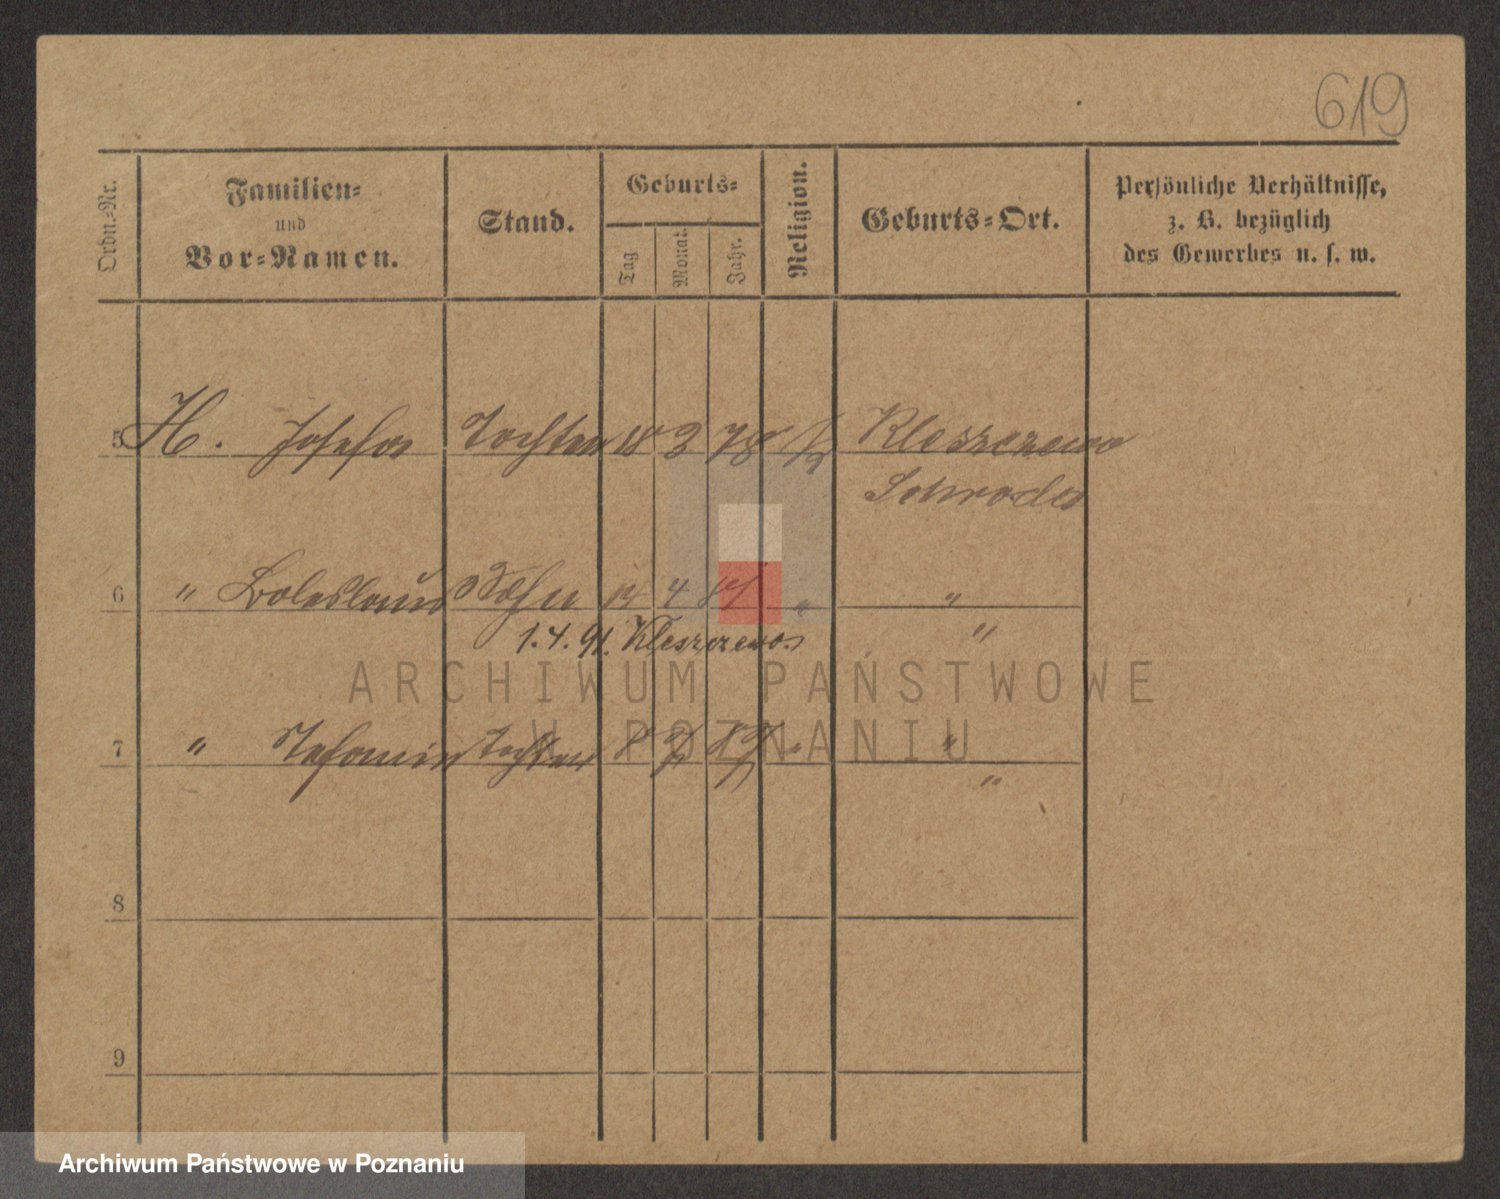 619
Ordn.=Nr.
Familien=
und
Vor=Namen.
Stand.
Geburts=
Tag
Monat.
Jahr.
Religion.
Geburts=Ort.
Persönliche Verhältnisse,
z. B. bezüglich
des Gewerbes u. s. w.
5 H. Josefa Tochter 18 3 78 Kleszczewo
Schroda
6 " Boleslaus Sohn 14 4 " "
1.4.91. Kleszczewo. "
7 " Stefanie Tochter 8 " "
"
8
9
ARCHIWUM PAŃSTWOWE
W POZNANIU
Archiwum Państwowe w Poznaniu